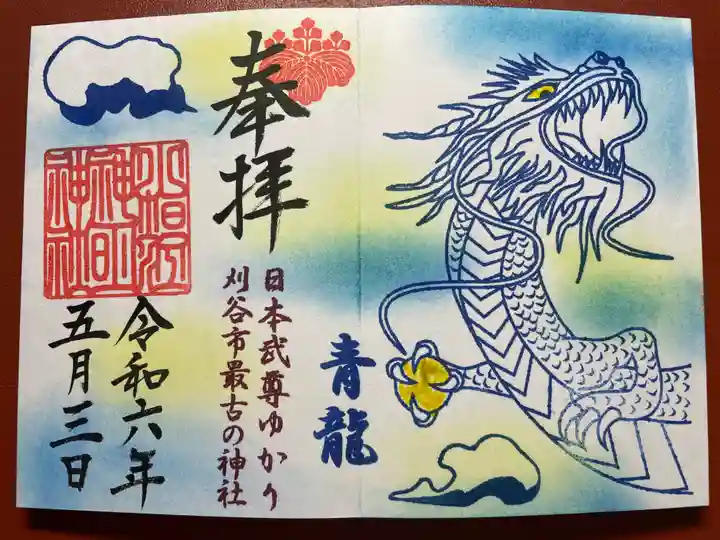 青龍
奉拝
日本武尊ゆかり
刈谷市最古の神社
小垣江
神明
神社
令和六年
五月三日